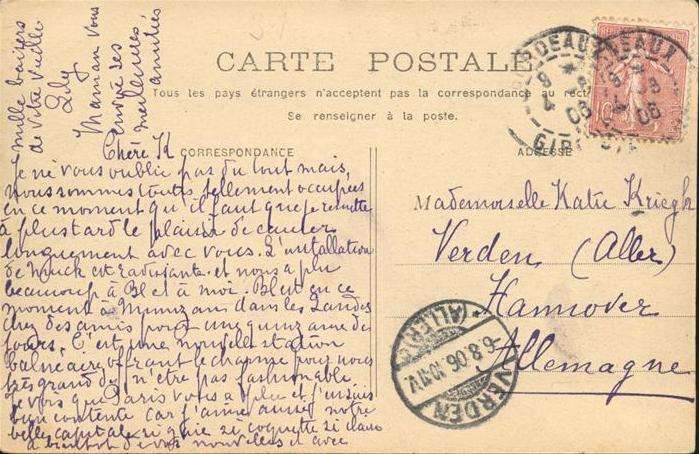 CARTE POSTALE
Tous les pays étrangers n'acceptent pas la correspondance au recto
Se renseigner à la poste.
CORRESPONDANCE
ADRESSE
BORDEAUX BORDEAUX
GIRONDE
Chère K
Je ne vous oublie pas du tout mais,
nous sommes toutes tellement occupées
en ce moment qu'il faut que je remette
à plus tard le plaisir de causer
longuement avec vous. L'installation
de est ravissante et nous a plu
beaucoup à Bl et à moi. Bl est en ce
moment à Mimizan dans les Landes
chez des amis pour une quinzaine de
jours. C'est une nouvelle station
balnéaire offrant le charme pour nous
très grand de n'être pas fashionable
Je vois que Paris vous a plu et j'en suis
bien contente car j'aime aussi notre
belle capitale si gaie si coquette si
à bientôt de vos nouvelles et avec
mille baisers
de votre vieille
Lily
Maman vous
envoie ses
meilleures
amitiés
Mademoiselle Katie Kriegk
Verden (Aller)
Hannover
Allemagne
VERDEN
(ALLER)
6.8.06.10-11V.